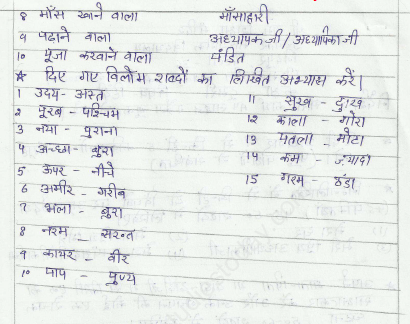 8 माँस खाने वाला माँसाहारी
9 पढ़ाने वाला अध्यापक जी / अध्यापिका जी
10 पूजा करवाने वाला पंडित
★ दिए गए विलोम शब्दों का लिखित अभ्यास करें।
1 उदय - अस्त
2 पूरब - पश्चिम
3 नया - पुराना
4 अच्छा - बुरा
5 ऊपर - नीचे
6 अमीर - गरीब
7 भला - बुरा
8 नरम - सख्त
9 कायर - वीर
10 पाप - पुण्य
11 सुख - दुःख
12 काला - गोरा
13 पतला - मोटा
14 कम - ज़्यादा
15 गरम - ठंडा